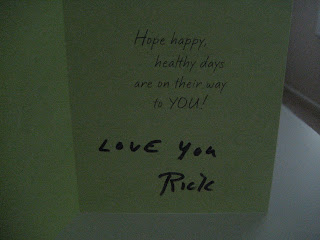 Hope happy,
healthy days
are on their way
to YOU!
LOVE You
Rick